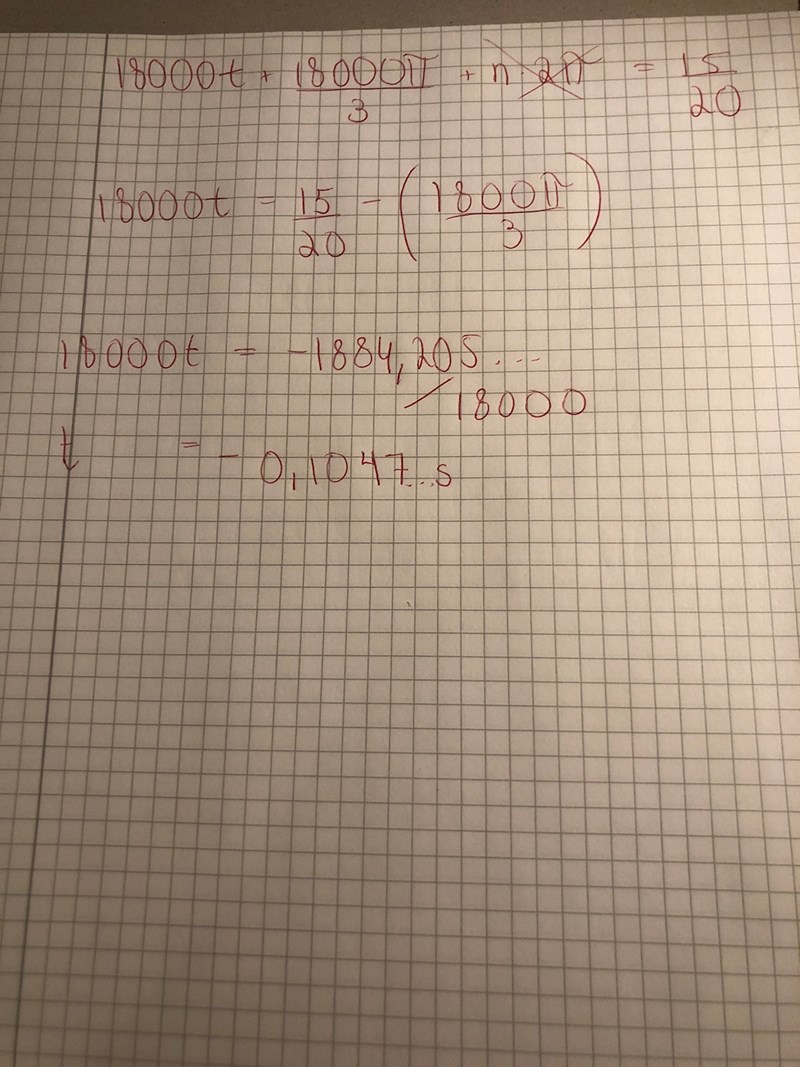 18000t + 18000π/3 + n · 2π = 15/20
18000t = 15/20 - (1800π/3)
18000t = -1884,205...
/18000
t = -0,1047...s